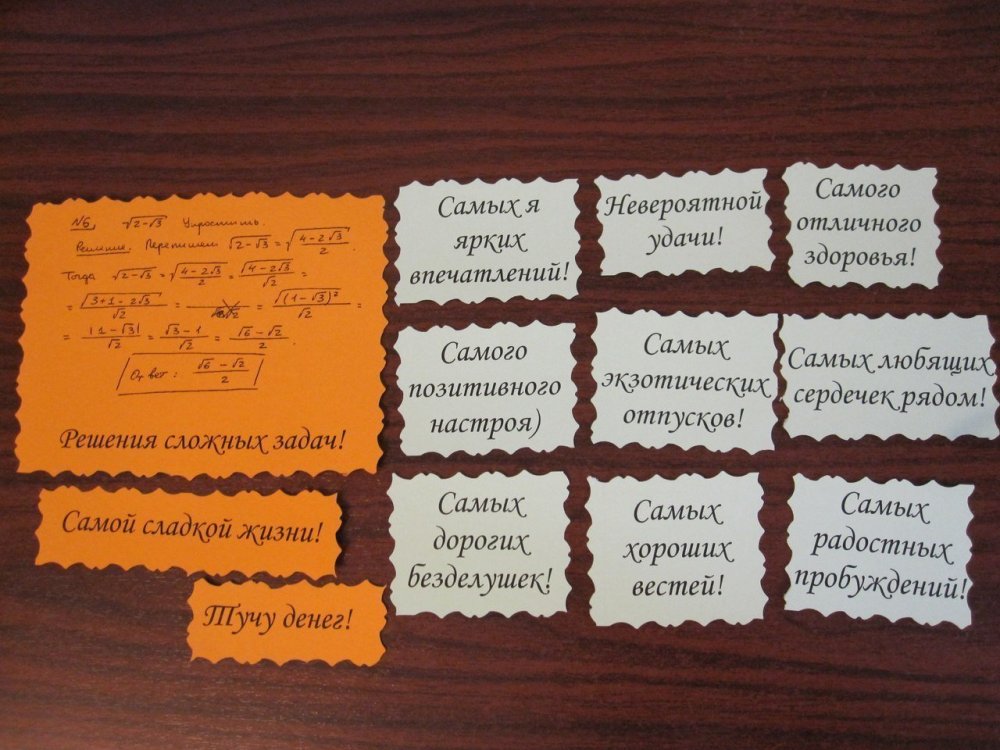 №6. √(2-√3) Упростить.
Решение. Перепишем √(2-√3) = √((4-2√3)/2).
Тогда √(2-√3) = √((4-2√3)/2) = √(4-2√3)/√2 =
= √(3+1-2√3)/√2 = = √((1-√3)²)/√2 =
= |1-√3|/√2 = (√3-1)/√2 = (√6-√2)/2.
Ответ: (√6-√2)/2
Решения сложных задач!
Самой сладкой жизни!
Тучу денег!
Самых я
ярких
впечатлений!
Невероятной
удачи!
Самого
отличного
здоровья!
Самого
позитивного
настроя)
Самых
экзотических
отпусков!
Самых любящих
сердечек рядом!
Самых
дорогих
безделушек!
Самых
хороших
вестей!
Самых
радостных
пробуждений!